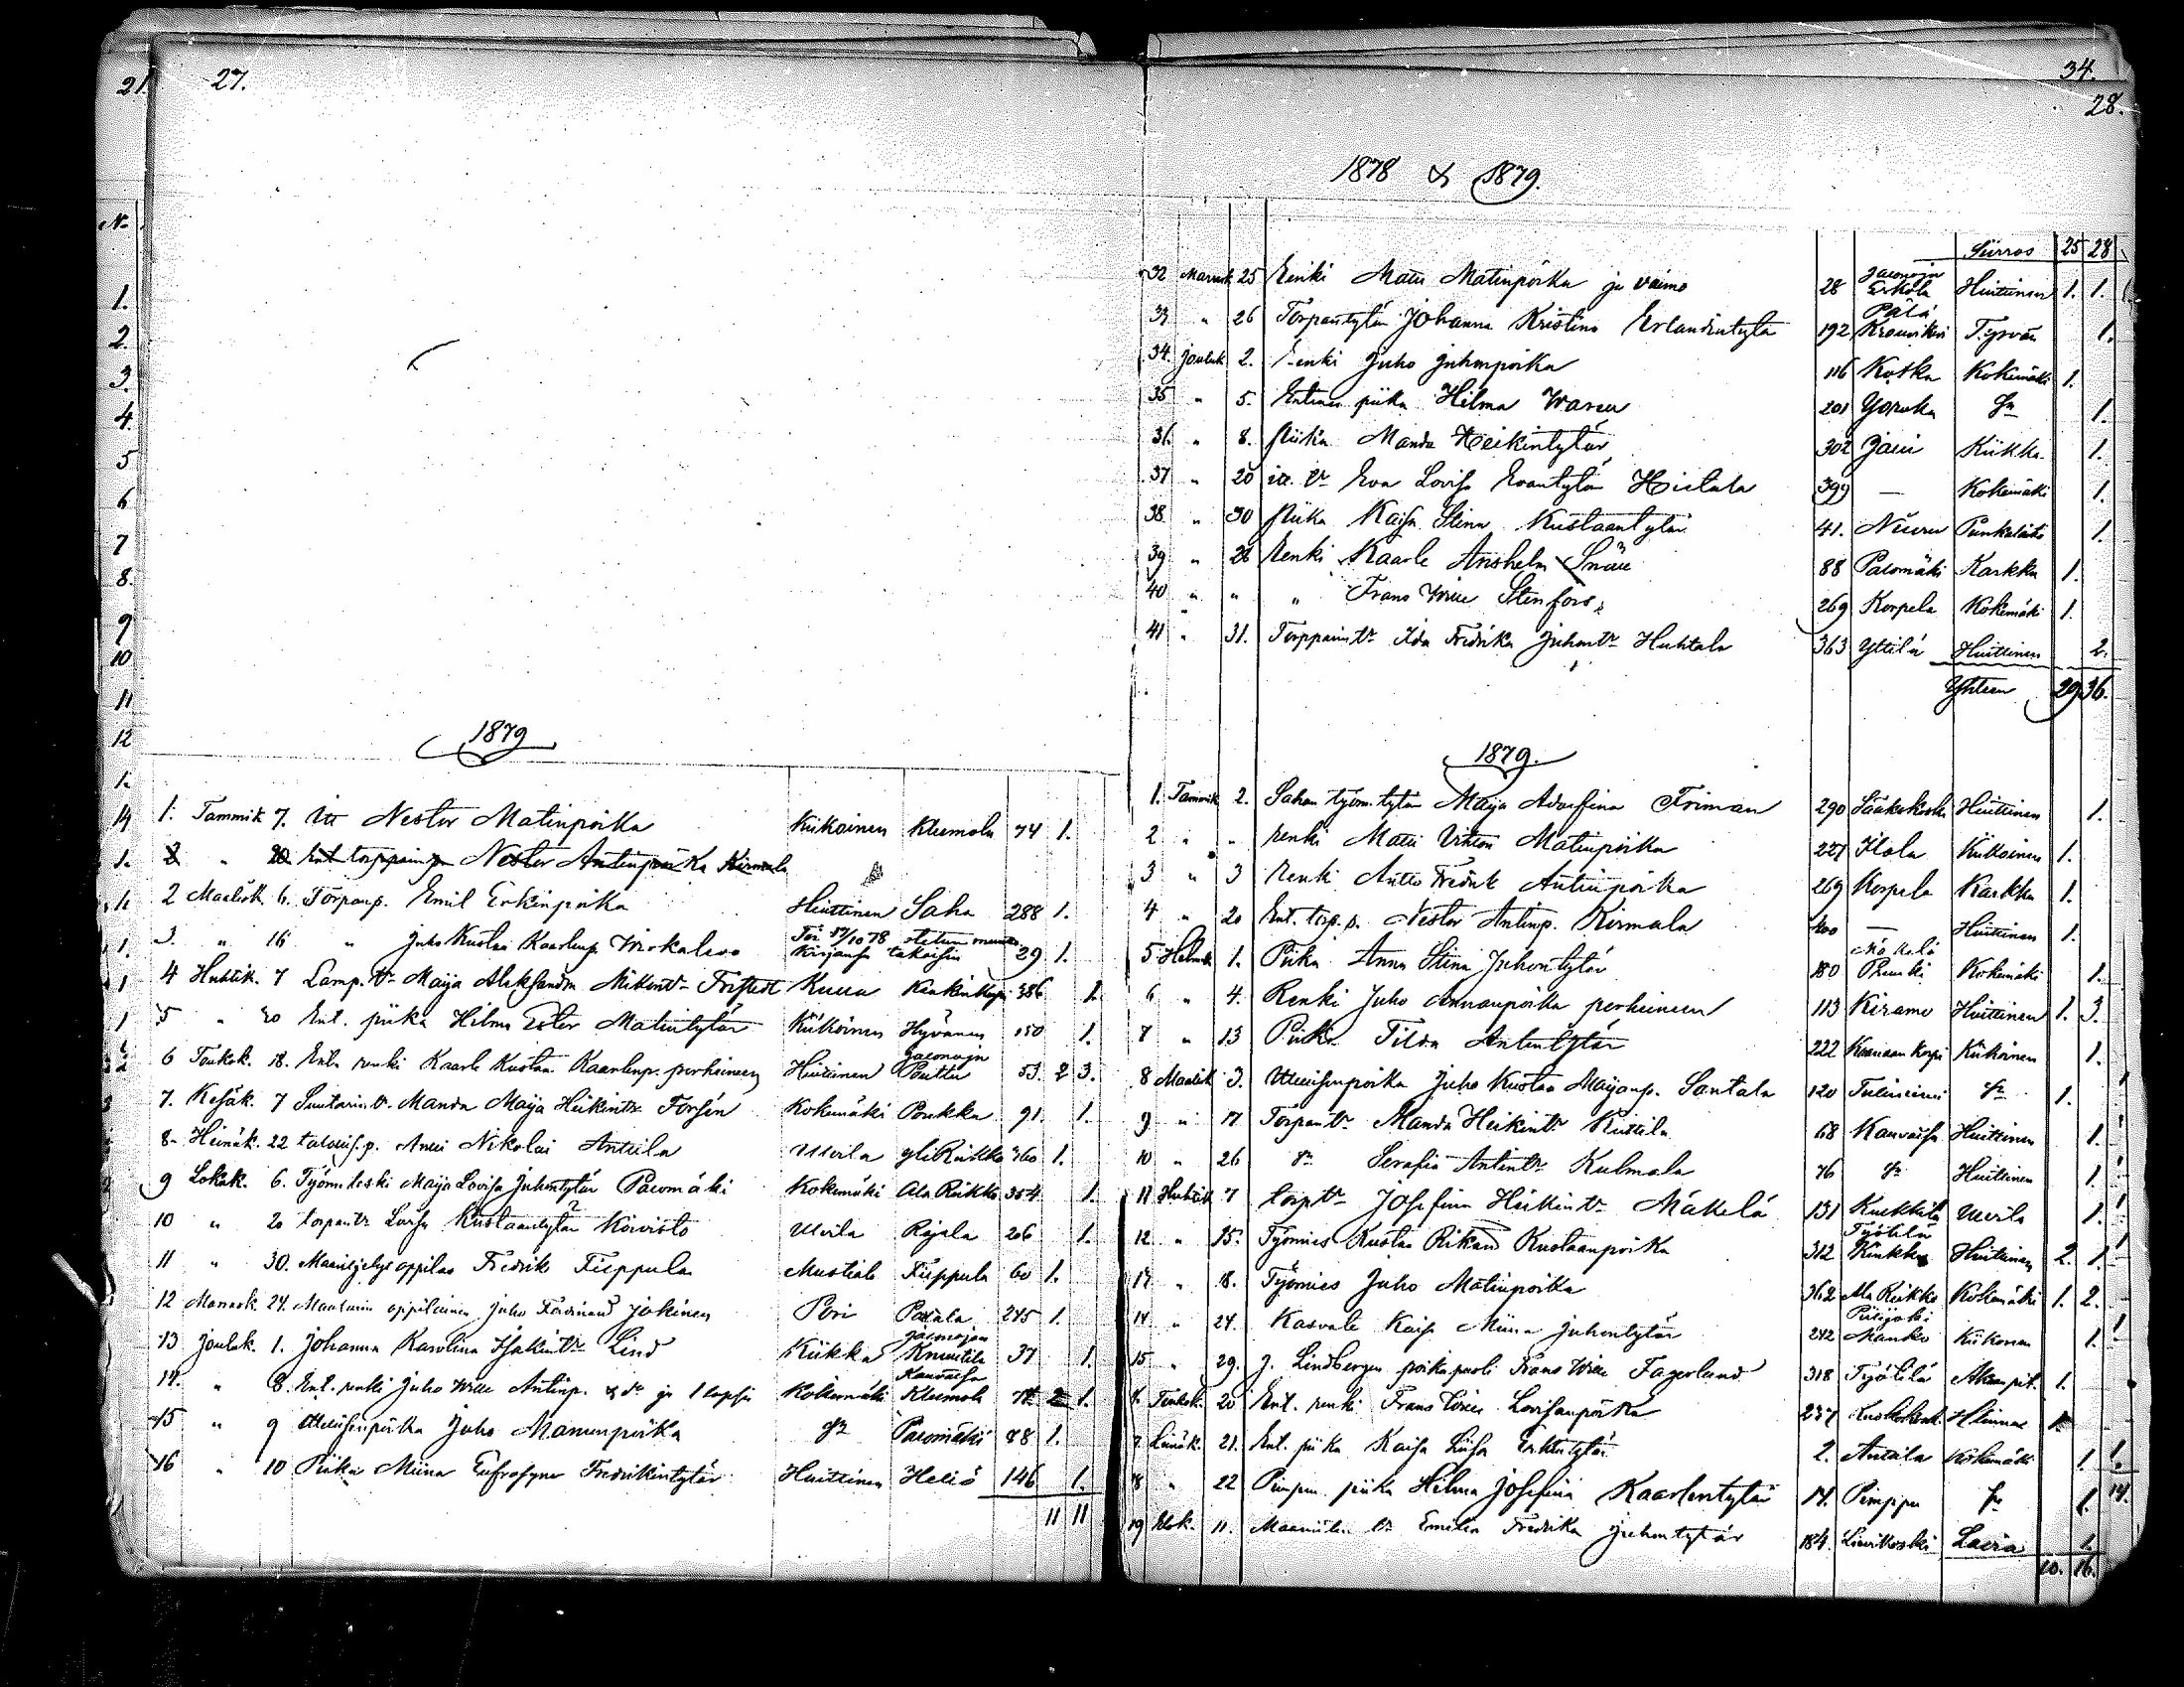 21. 27.
1879
1. Tammik 7. Itt Nestor Matinpoika Kiikoinen Kleemola 74 1.
2 " 20 Ent torppainp Nestor Antinpoika Kirmala
2 Maalisk 6. Torpanp. Emil Erkinpoika Huittinen Saha 288 1.
3. " 16 " Juho Kustaa Kaarlenp. Wirkalavo Kirjansa takaisin 29 1.
4 Huhtik. 7 Lamp. tr Maija Aleksandra Mikint 386 1.
5 " 20 Ent. piika Hilma Ester Matintytär Kiikoinen Hyvänen 150 1.
6 Toukok. 18. Entn renki Kaarle Kustaa Kaarlenp. perheineen Huittinen Jaconoja Puttu 53. 2 3.
7. Kesäk. 7 Suutarin tr. Manda Maija Heikintr. Forsén Kokemäki Pukka 91. 1.
8. Heinäk. 22 talollis.p. Antti Nikolai Anttila Ulvila yliRiikko 360 1.
9 Lokak. 6. Työm. leski Maija Lovisa Juhontytär Palomäki Kokemäki Ala Riikko 354. 1.
10 " 20 torpantr Lovisa Kustaantytär Koivisto Ulvila Rajala 206 1.
11 " 30. Maanviljelys oppilas Fredrik Fiippula Mustiala Fiippula 60 1.
12 Marrask. 24. oppilainen Juho Ferdinand Jokinen Pori 245 1.
13 Jouluk. 1. Johanna Karolina Isakintr Lind Kiikka Jaconojan Knuutila 37 1.
14. " 8. Ent. renki Juho Wille Antinp. & vr ja 1 lapsi Kokemäki Kauvatsa Kleemola 74 2 1.
15 " 9 Itsellisenpoika Juho Manunpoika Sr Palomäki 88 1.
16 " 10 Piika Miina Eufrosyne Fredrikintytär Huittinen Heliö 146 1.
11 11
34.
28.
1878 & 1879.
Siirros 25 28
32 Marrask 25 Renki Matti Matinpoika ja vaimo 28 Jaconojan Erkola Huittinen 1. 1.
33 " 26 Torpantytär Johanna Kristina Erlandintytär 192 Krouvikivi Tyrvän 1.
34. Jouluk 2. Renki Juho Juhonpoika 116 Koska Kokemäki 1.
35 " 5. Entinen piika Hilma Waren 201 Sr 1.
36. " 8. Piika Manda Heikintytär 302 Jani Kiikka 1.
37 " 20 itt. tr Eva Lovisa Evantytär Hietala 399 — Kokemäki 1.
38. " 30 Piika Kaisa Stina Kustaantytär 41. Punkalaito 1.
39 " 28 Renki Kaarle Anshelm Snäll 88 Palomäki Karkku 1.
40 " " " Frans Wille Stenfors 269 Korpela Kokemäki 1.
41 " 31. Torppaintr Ida Fredrika Juhontr Huhtala 363 Yttilä Huittinen 2.
Yhteen 29 36.
1879.
1. Tammik 2. Sahan työm. tytär Maija Adolfina Friman 290 Sääkskoski Huittinen 1.
2 " " renki Matti Viktori Matinpoika 227 Itala Kiikoinen 1.
3 " 3 Renki Antto Fredrik Antinpoika 269 Korpela Karkku 1.
4 " 20 Ent. torp.p. Nestor Antinp. Kirmala 400 — Huittinen 1.
5 Helmik 1. Piika Anna Stina Juhontytär 180 Kokemäki 1.
6 " 4. Renki Juho Annanpoika perheineen 113 Kiramo Huittinen 1. 3.
7 " 13 Piika Tilda Antintytär 222 Kiikoinen 1.
8 Maalisk 3. Itsellisenpoika Juho Kustaa Maijanp. Santala 120 Sr 1.
9 " 17 Torpantr Manda Heikintr Kiittila 68 Kauvatsa Huittinen 1.
10 " 26 Sr Serafia Antintr Kulmala 76 Sr Huittinen 1.
11 Huhtik 7 torptr Josefina Heikintr Mäkelä 131 Ulvila 1.
12. " 15. Työmies Kustaa Rikard Kustaanpoika 312 Työtilä Huittinen 2. 1.
13 " 18. Työmies Juho Matinpoika 362 Ala Riikko Kokemäki 1. 2.
14 " 24. Kasvate Kaisa Miina Juhontytär 242 Kiikoinen 1.
15 " 29. J. Lindbergin poikapuoli Frans Wille Fagerlund 318 Työtilä 1.
16 Toukok. 20 Ent. renki Frans Wille Lovisanpoika 237 1.
17 21. Ent. piika Kaisa Liisa Erkintytär 2. Antola Kokemäki 1.
18 " 22 piika Hilma Josefina Kaarlentytär 14. Pimppu Sr 1.
19 Elok. 11. tr Emilia Fredrika Juhontytär 184. Liurikoski Lavia 1.
10. 16.